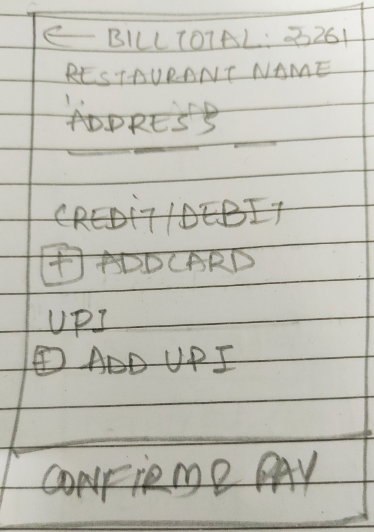 ← BILL TOTAL: ₹3261
RESTAURANT NAME
ADDRESS
CREDIT/DEBIT
+ ADD CARD
UPI
+ ADD UPI
CONFIRM & PAY